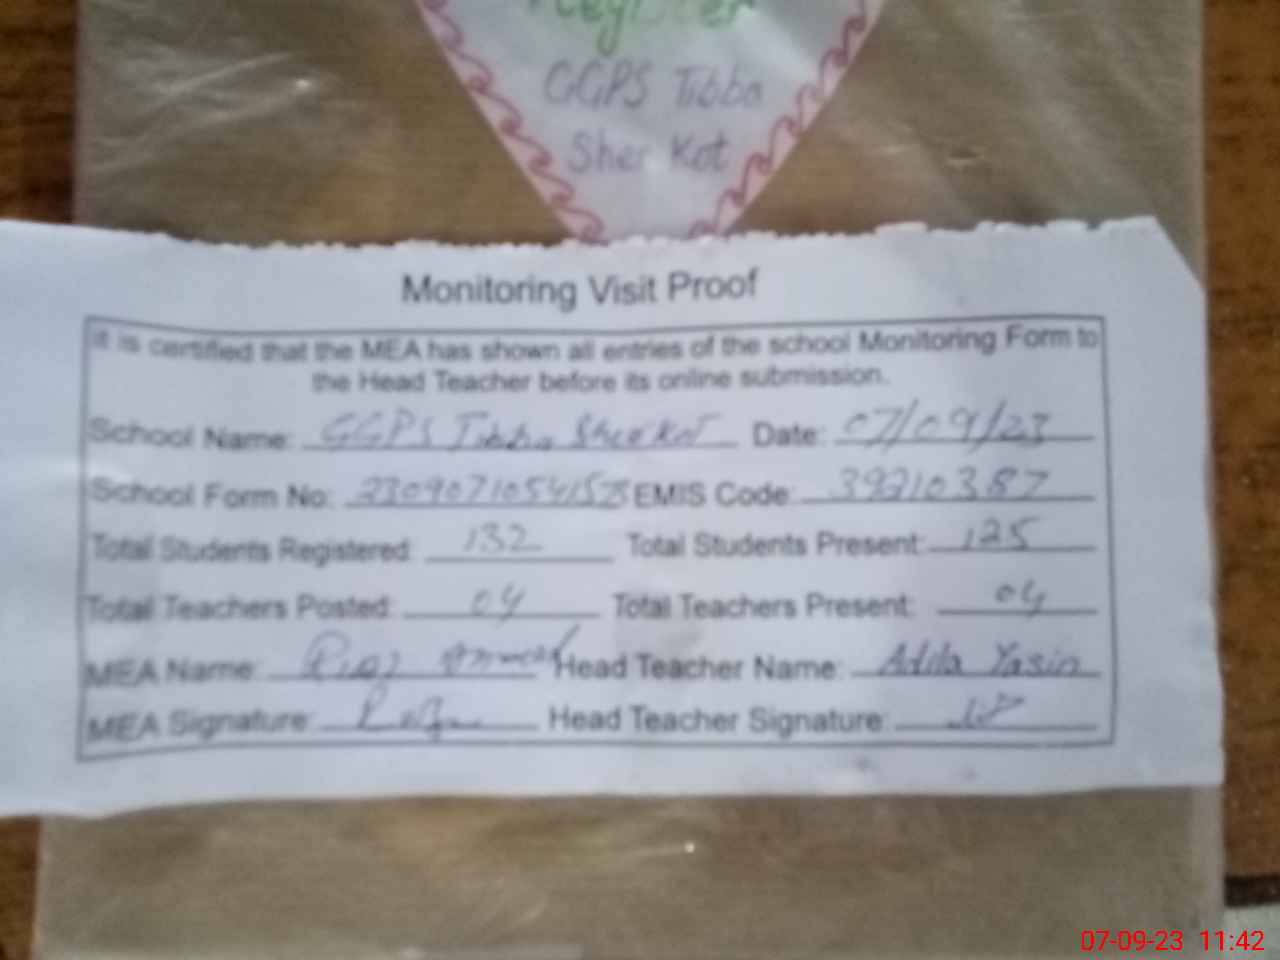 Register
GGPS Tibba
Sher Kot
Monitoring Visit Proof
it is certified that the MEA has shown all entries of the school Monitoring Form to
the Head Teacher before its online submission.
School Name: GGPS Tibba Sher Kot Date: 07/09/23
School Form No: EMIS Code: 39210387
Total Students Registered: 132 Total Students Present: 125
Total Teachers Posted: 04 Total Teachers Present: 04
MEA Name: Riaz Ahmad Head Teacher Name: Adila Yasin
MEA Signature: Head Teacher Signature:
07-09-23 11:42